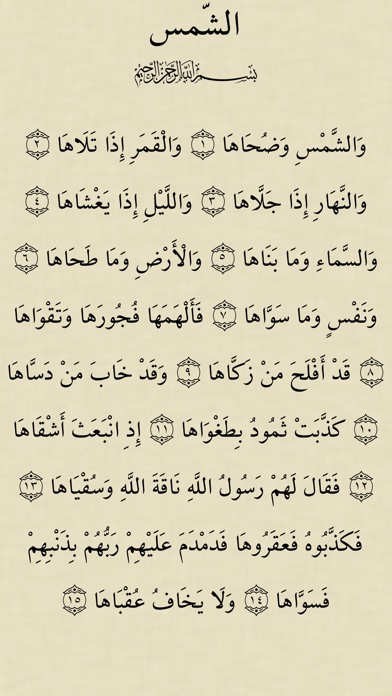 الشّمس
بسم الله الرحمن الرحيم
وَالشَّمْسِ وَضُحَاهَا ١ وَالْقَمَرِ إِذَا تَلَاهَا ٢
وَالنَّهَارِ إِذَا جَلَّاهَا ٣ وَاللَّيْلِ إِذَا يَغْشَاهَا ٤
وَالسَّمَاءِ وَمَا بَنَاهَا ٥ وَالْأَرْضِ وَمَا طَحَاهَا ٦
وَنَفْسٍ وَمَا سَوَّاهَا ٧ فَأَلْهَمَهَا فُجُورَهَا وَتَقْوَاهَا
٨ قَدْ أَفْلَحَ مَنْ زَكَّاهَا ٩ وَقَدْ خَابَ مَنْ دَسَّاهَا
١٠ كَذَّبَتْ ثَمُودُ بِطَغْوَاهَا ١١ إِذِ انْبَعَثَ أَشْقَاهَا
١٢ فَقَالَ لَهُمْ رَسُولُ اللَّهِ نَاقَةَ اللَّهِ وَسُقْيَاهَا ١٣
فَكَذَّبُوهُ فَعَقَرُوهَا فَدَمْدَمَ عَلَيْهِمْ رَبُّهُمْ بِذَنْبِهِمْ
فَسَوَّاهَا ١٤ وَلَا يَخَافُ عُقْبَاهَا ١٥